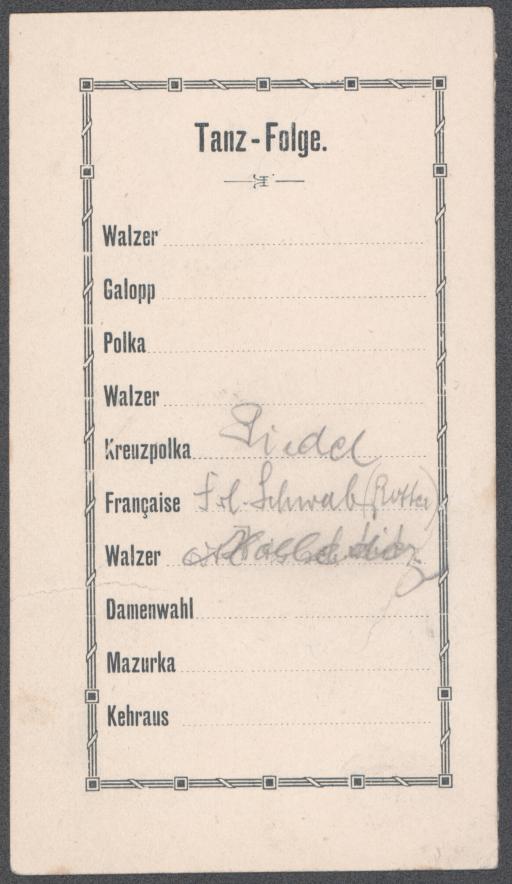 Tanz-Folge.
Walzer
Galopp
Polka
Walzer
Kreuzpolka Riedel
Française Frl. Schwab (Rotter)
Walzer
Damenwahl
Mazurka
Kehraus